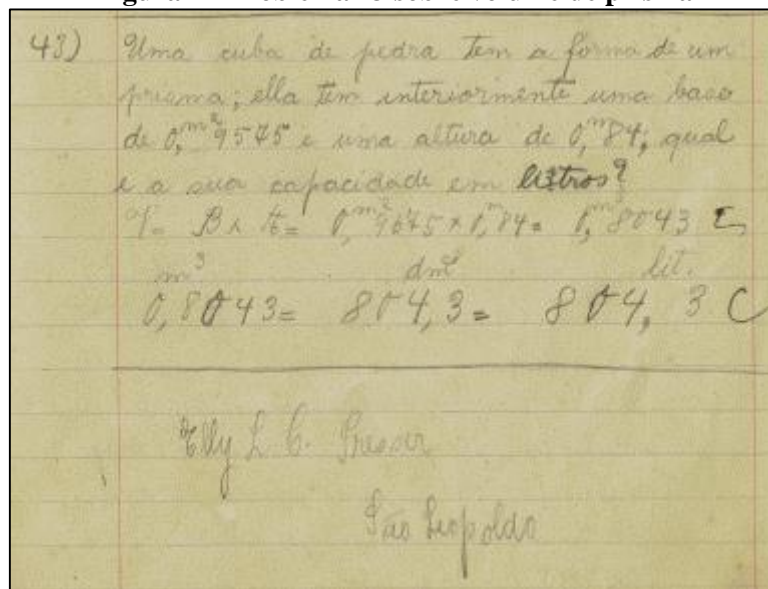 43) Uma cuba de pedra tem a forma de um
prisma; ella tem interiormente uma base
de 0,m²9575 e uma altura de 0,m84; qual
é a sua capacidade em listros?
V= B x A= 0,m²9575 x 0,m84= 0,m³8043 C
m³ dm³ lit.
0,8043= 804,3= 804, 3 C
Elly L C. Presser
São Leopoldo